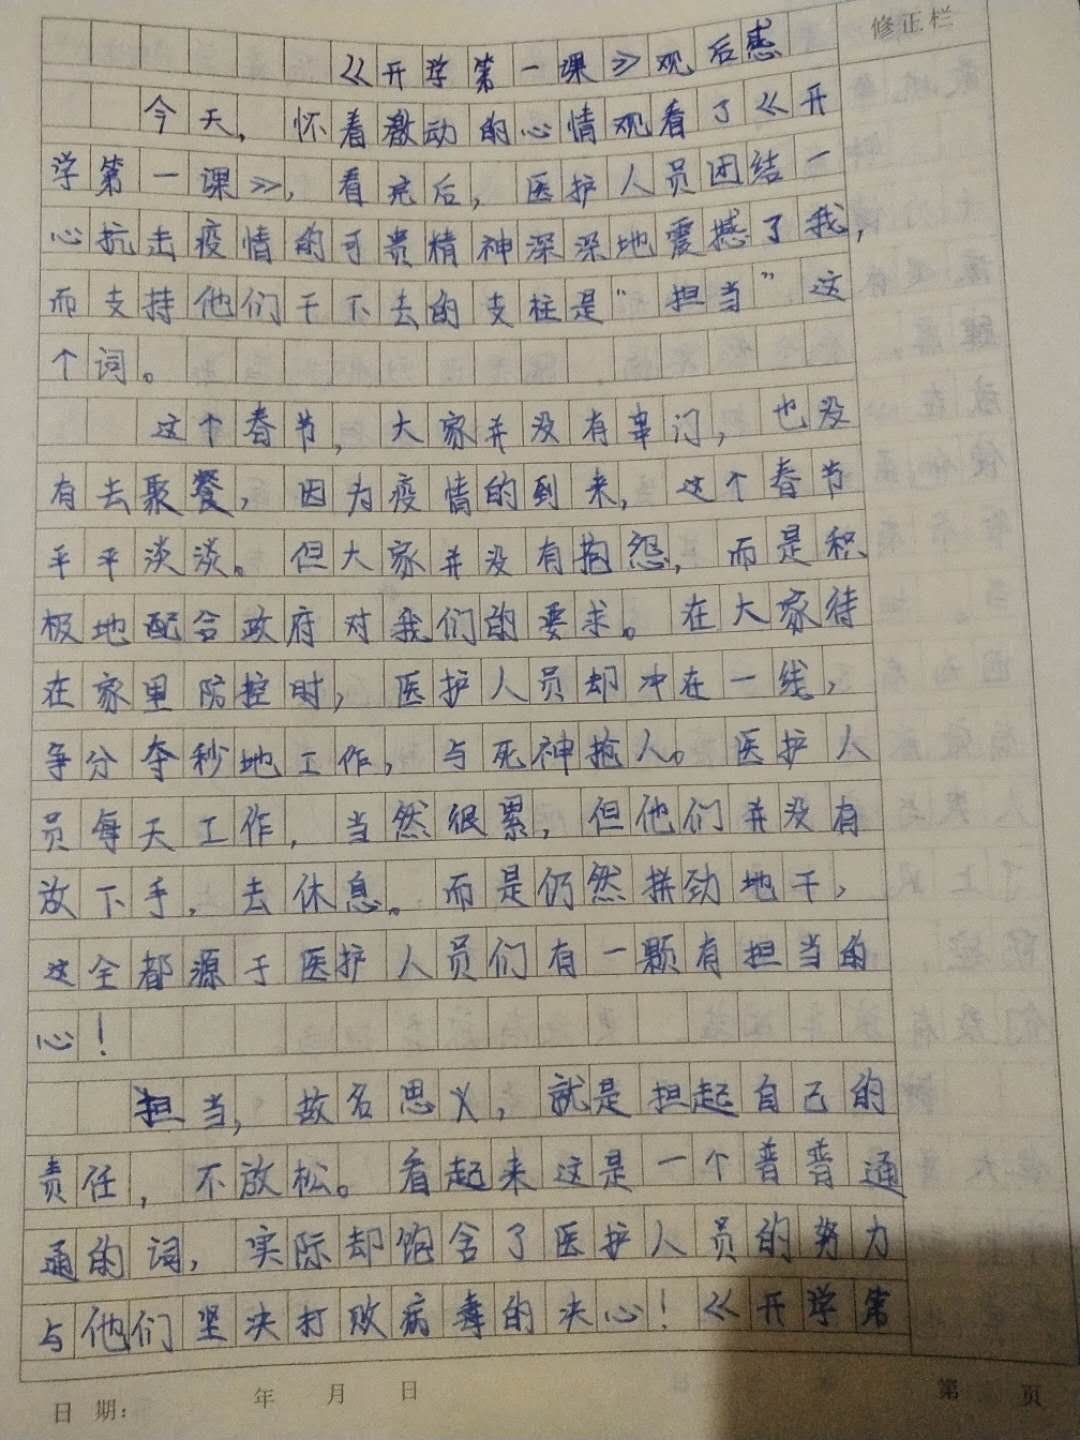 修正栏
《开学第一课》观后感
今天，怀着激动的心情观看了《开
学第一课》，看完后，医护人员团结一
心抗击疫情的可贵精神深深地震撼了我，
而支持他们干下去的支柱是“担当”这
个词。
这个春节，大家并没有串门，也没
有去聚餐，因为疫情的到来，这个春节
平平淡淡。但大家并没有抱怨，而是积
极地配合政府对我们的要求。在大家待
在家里防控时，医护人员却冲在一线，
争分夺秒地工作，与死神抢人。医护人
员每天工作，当然很累，但他们并没有
放下手，去休息。而是仍然拼劲地干，
这全都源于医护人员们有一颗有担当的
心！
担当，故名思义，就是担起自己的
责任，不放松。看起来这是一个普普通
通的词，实际却饱含了医护人员的努力
与他们坚决打败病毒的决心！《开学第
日期： 年 月 日
第 页